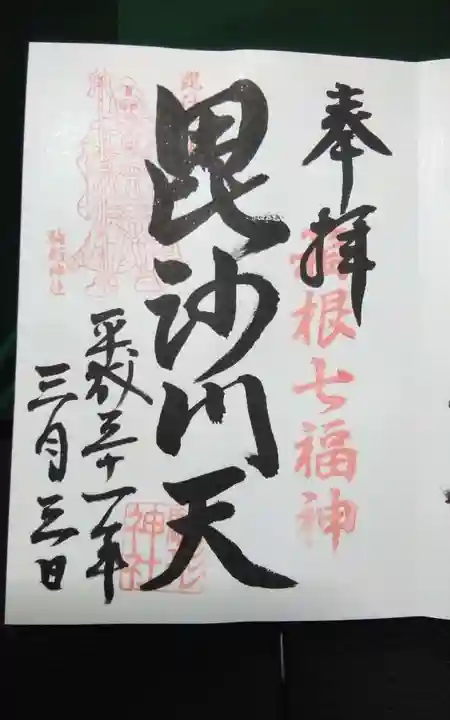 奉拝
箱根七福神
毘沙门天
平成三十一年
三月三日
駒形神社